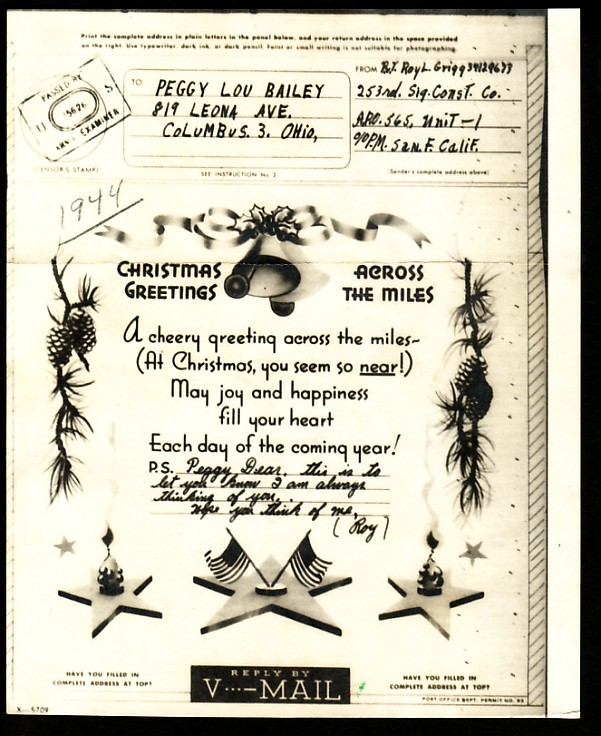 Print the complete address in plain letters in the panel below, and your return address in the space provided
on the right. Use typewriter, dark ink, or dark pencil. Faint or small writing is not suitable for photographing.
PASSED BY
15626
ARMY EXAMINER
(CENSOR'S STAMP)
TO:
PEGGY LOU BAILEY
819 LEONA AVE.
COLUMBUS. 3. OHIO,
SEE INSTRUCTION No. 2
FROM
Roy L. Grigg
253rd. Sig. Const. Co.
A.P.O. 565, Unit-1
P.M. San. F. Calif.
(Sender's complete address above)
1944
CHRISTMAS GREETINGS
ACROSS THE MILES
A cheery greeting across the miles~
(At Christmas, you seem so near!)
May joy and happiness
fill your heart
Each day of the coming year!
P.S. Peggy Dear, this is to
let you know I am always
thinking of you.
Hope you think of me.
(Roy)
HAVE YOU FILLED IN
COMPLETE ADDRESS AT TOP?
REPLY BY
V···—MAIL
HAVE YOU FILLED IN
COMPLETE ADDRESS AT TOP?
POST OFFICE DEPT. PERMIT NO.
X—5709